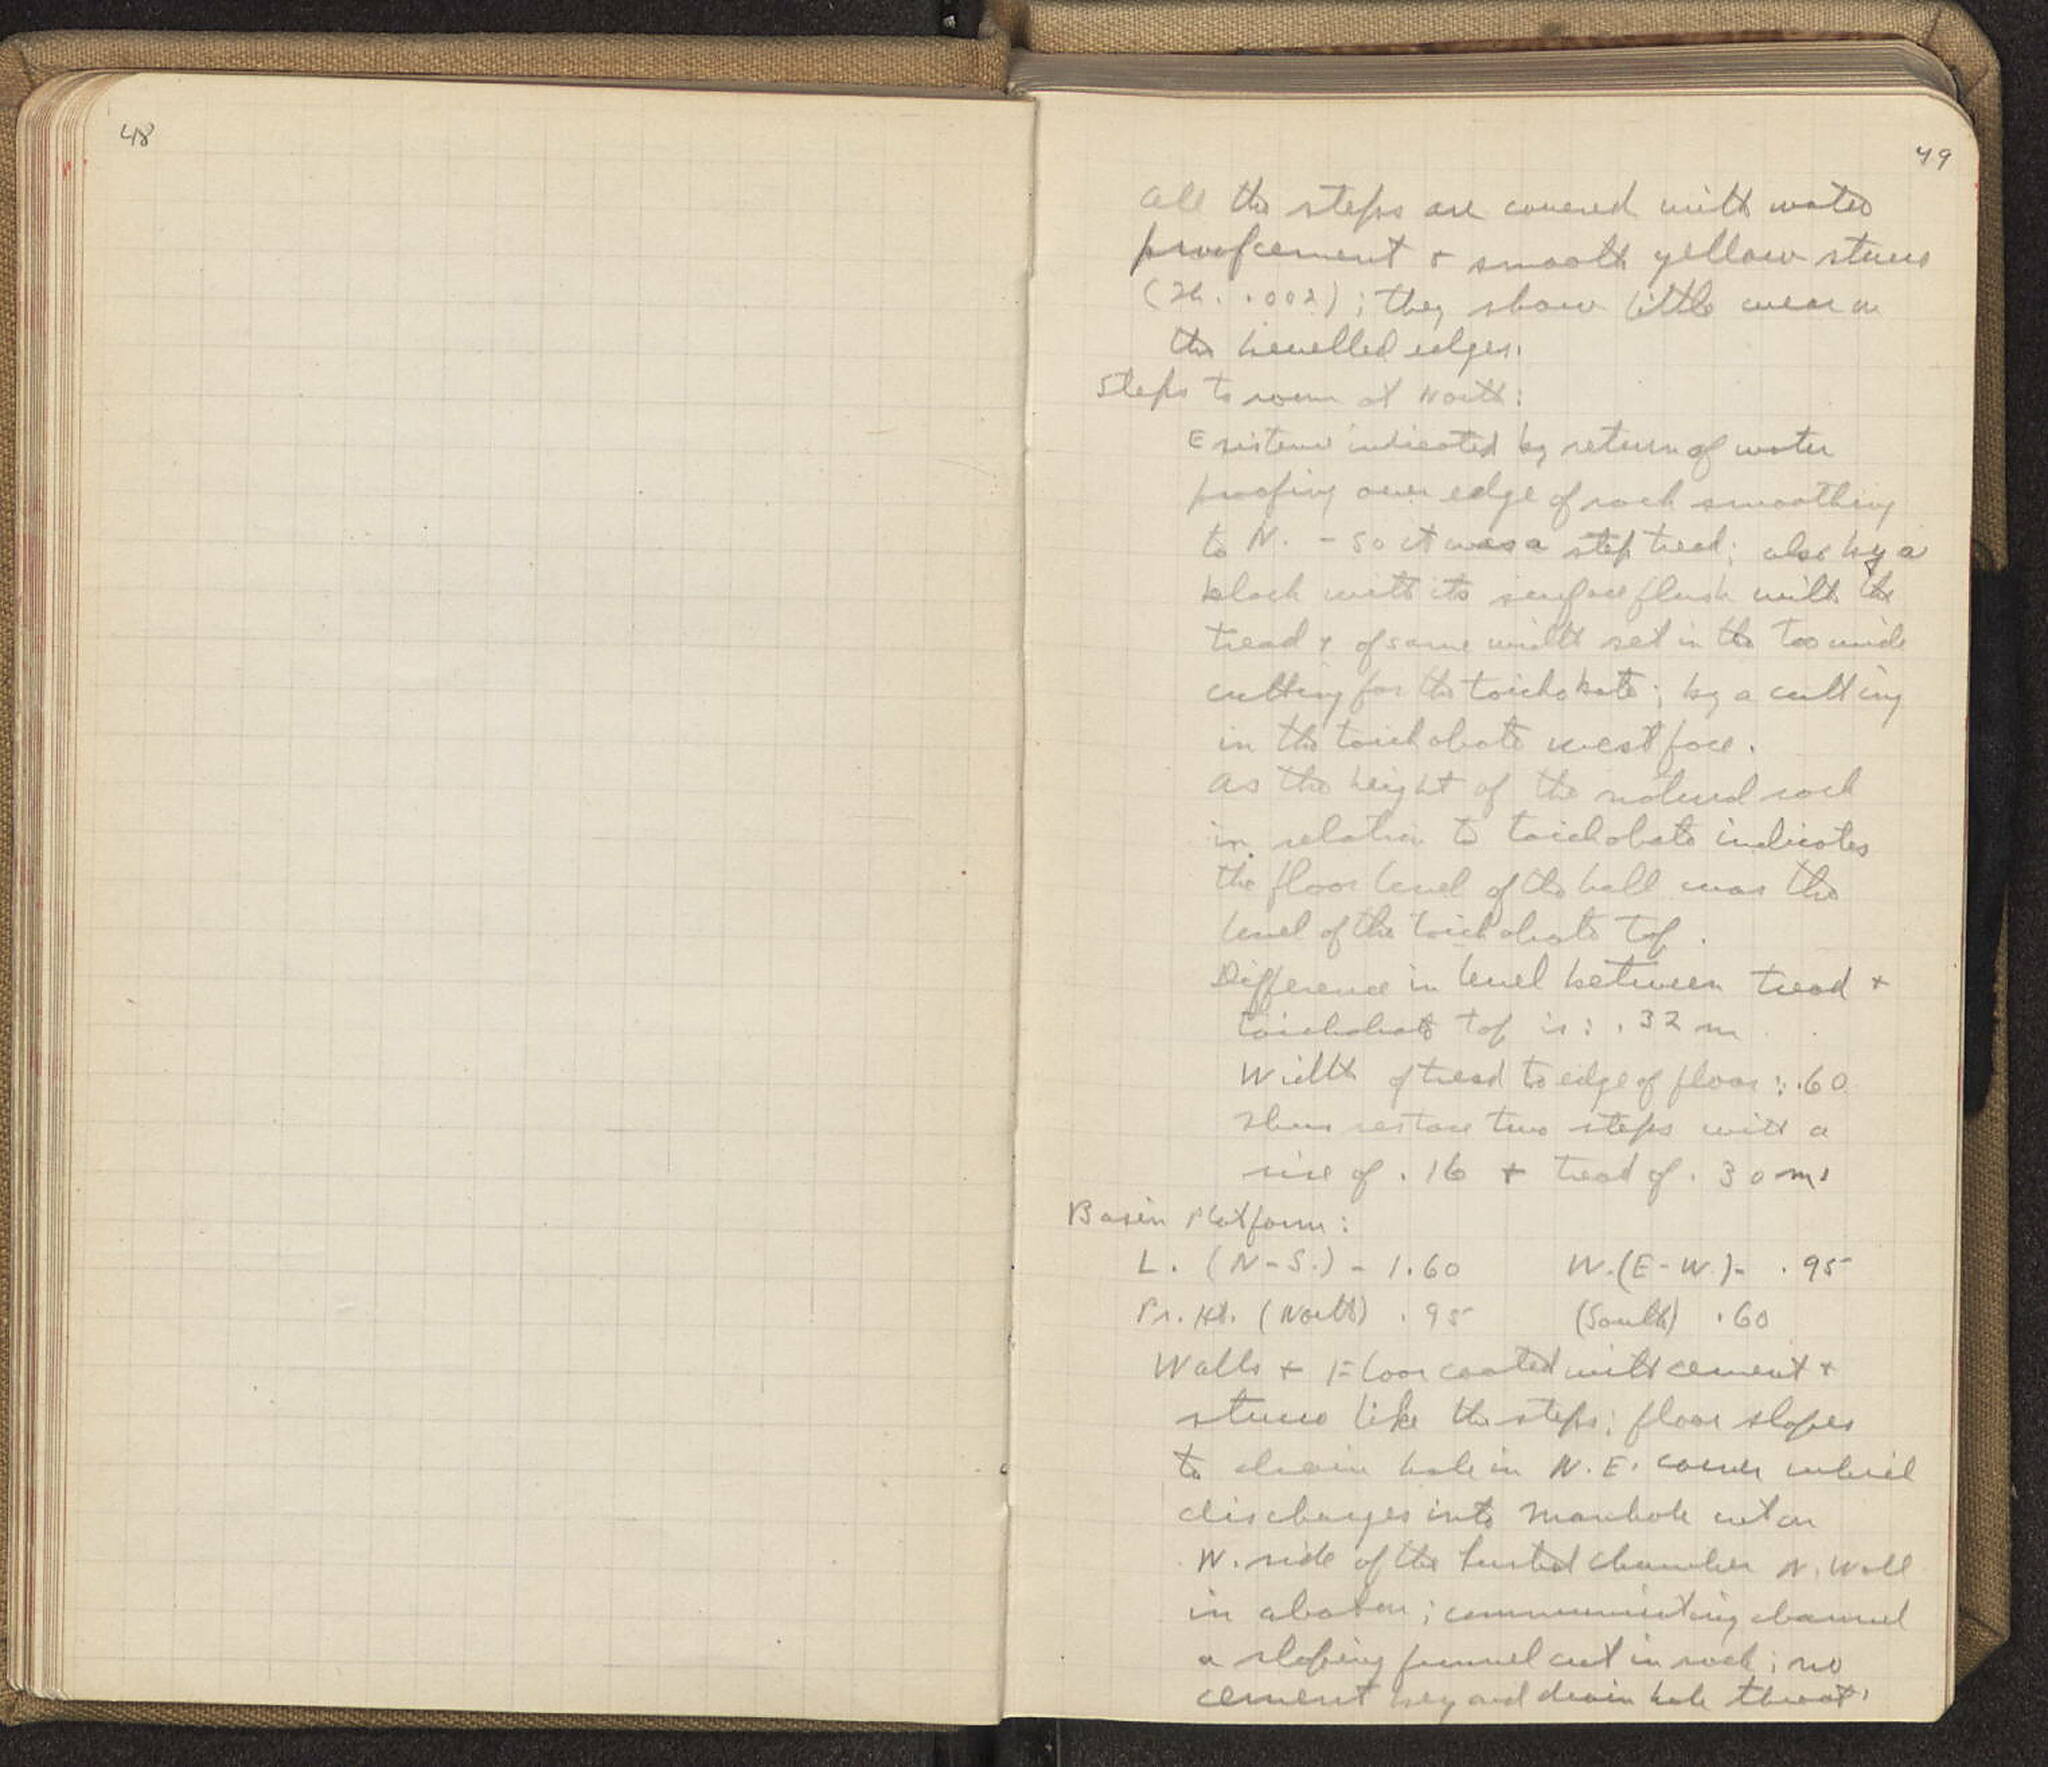 48
49
All the steps are covered with water
proof cement + smooth yellow stucco
(Th. .002) ; they show little wear on
the bevelled edges.
Steps to room at North:
Existence indicated by return of water
proofing over edge of rock smoothing
to N. - so it was a step tread; also by a
block with its surface flush with the
tread + of same width set in the too wide
cutting for the toichobate; by a cutting
in the toichobate west face.
As the height of the natural rock
in relation to toichobate indicates
the floor level of the hall was the
level of the toichobate top.
Difference in level between tread +
toichobate top is: .32 m
Width of tread to edge of floor: .60
Thus restore two steps with a
rise of .16 + tread of .30 m.
Basin Platform:
L. (N-S.) - 1.60 W.(E-W.)- .95
Pr. Ht. (North) .95 (South) .60
Walls + Floor coated with cement +
stucco like the steps; floor slopes
to drain hole in N.E. corner which
discharges into manhole cut on
W. side of the chamber N. Wall
in ; communicating channel
a sloping funnel cut in rock; no
cement beyond drain hole throat.